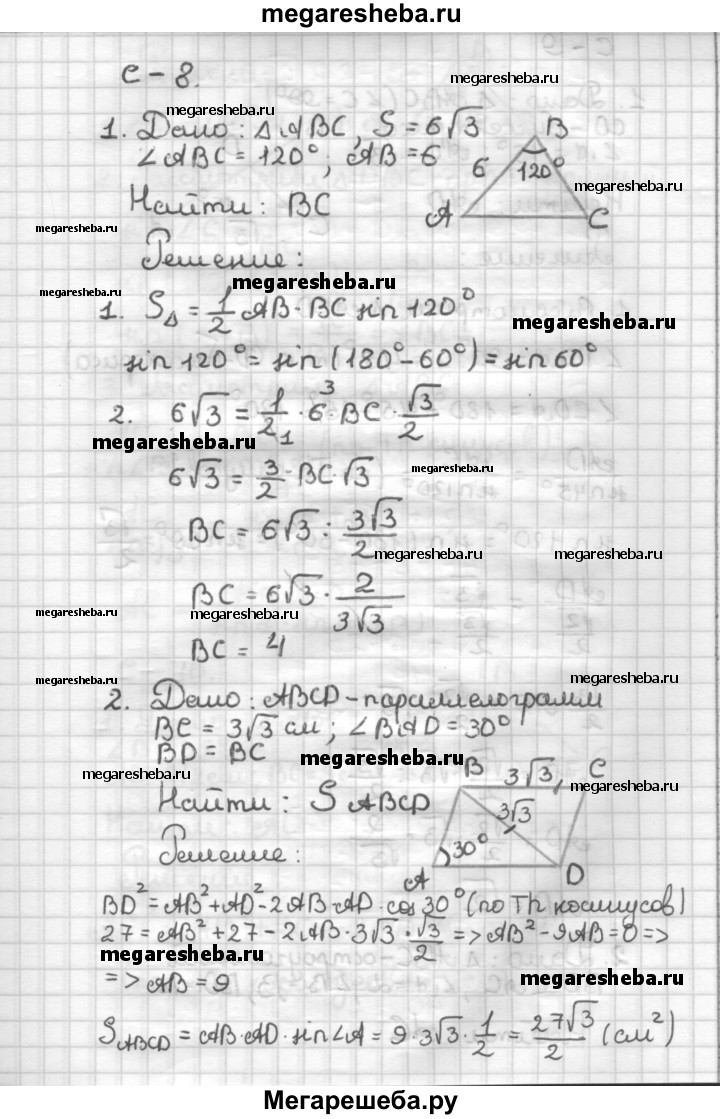 megaresheba.ru
С-8.
megaresheba.ru
megaresheba.ru
1. Дано: △ABC, S = 6√3
∠ABC = 120°; AB = 6
Найти: BC
B
6
120°
A
C
megaresheba.ru
megaresheba.ru
Решение:
megaresheba.ru
megaresheba.ru
1. S△ = 1/2 AB · BC sin 120°
megaresheba.ru
sin 120° = sin (180° - 60°) = sin 60°
2. 6√3 = 1/2 · 6 · BC · √3/2
3
1
megaresheba.ru
6√3 = 3/2 · BC · √3
megaresheba.ru
BC = 6√3 : 3√3/2
megaresheba.ru
megaresheba.ru
BC = 6√3 · 2/3√3
megaresheba.ru
megaresheba.ru
BC = 4
megaresheba.ru
megaresheba.ru
2. Дано: ABCD - параллелограмм
BC = 3√3 см; ∠BAD = 30°
BD = BC
megaresheba.ru
megaresheba.ru
megaresheba.ru
Найти: S ABCD
B
3√3
C
3√3
30°
A
D
Решение:
BD² = AB² + AD² - 2AB · AD · cos 30° (по Th косинусов)
27 = AB² + 27 - 2AB · 3√3 · √3/2 => AB² - 9AB = 0 =>
megaresheba.ru
=> AB = 9
megaresheba.ru
S ABCD = AB · AD · sin∠A = 9 · 3√3 · 1/2 = 27√3/2 (см²)
Мегарешеба.ру